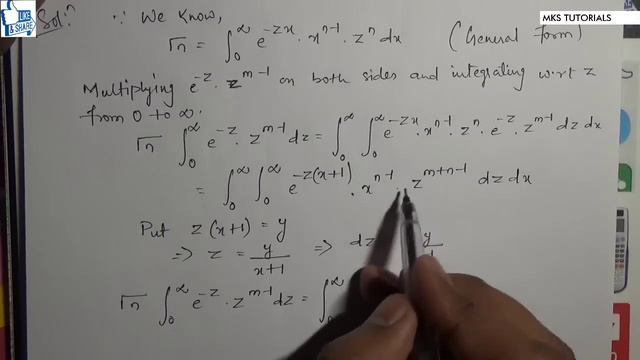 LIKE & SHARE
MKS TUTORIALS
Sol?
∵ We know,
Γn = ∫₀^∞ e^{-zx} · x^{n-1} · z^n dx (General Form)
Multiplying e^{-z} · z^{m-1} on both sides and integrating w.r.t z
from 0 to ∞.
Γn ∫₀^∞ e^{-z} · z^{m-1} dz = ∫₀^∞ ∫₀^∞ e^{-zx} · x^{n-1} · z^n · e^{-z} · z^{m-1} dz dx
= ∫₀^∞ ∫₀^∞ e^{-z(x+1)} · x^{n-1} · z^{m+n-1} dz dx
Put z(x+1) = y
⇒ z = y/(x+1) ⇒ dz y
Γn ∫₀^∞ e^{-z} · z^{m-1} dz = ∫₀^∞